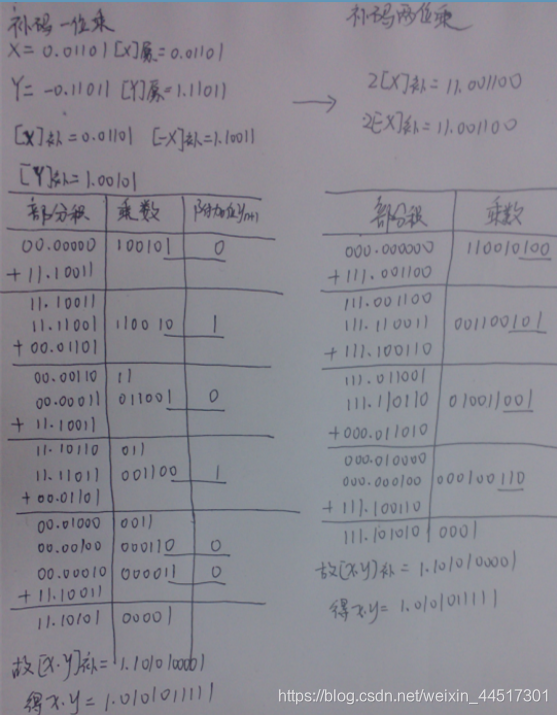 补码一位乘
X = 0.01101 [X]原=0.01101
Y= -0.11011 [Y]原=1.11011
[X]补=0.01101 [-X]补=1.10011
[Y]补=1.00101
部分积 乘数 附加位yn+1
00.00000 100101 0
+ 11.10011
11.10011
11.11001 110010 1
+00.01101
00.00110 11
00.00011 011001 0
+ 11.10011
11.10110 011
11.11011 001100 1
+00.01101
00.01000 0011
00.00100 000110 0
00.00010 000011 0
+ 11.10011
11.10101 00001
故[X.Y]补=1.1010100001
得x.y = 1.0101011111
补码两位乘
→ 2[X]补=11.001100
2[X]补=11.001100
部分积 乘数
000.000000 110010100
+111.001100
111.001100
111.110011 001100101
+111.100110
111.011001
111.110110 010011001
+000.011010
000.010000
000.000100 000100110
+ 111.100110
111.101010 0001
故[X.Y]补=1.1010100001
得x.y= 1.0101011111
https://blog.csdn.net/weixin_44517301